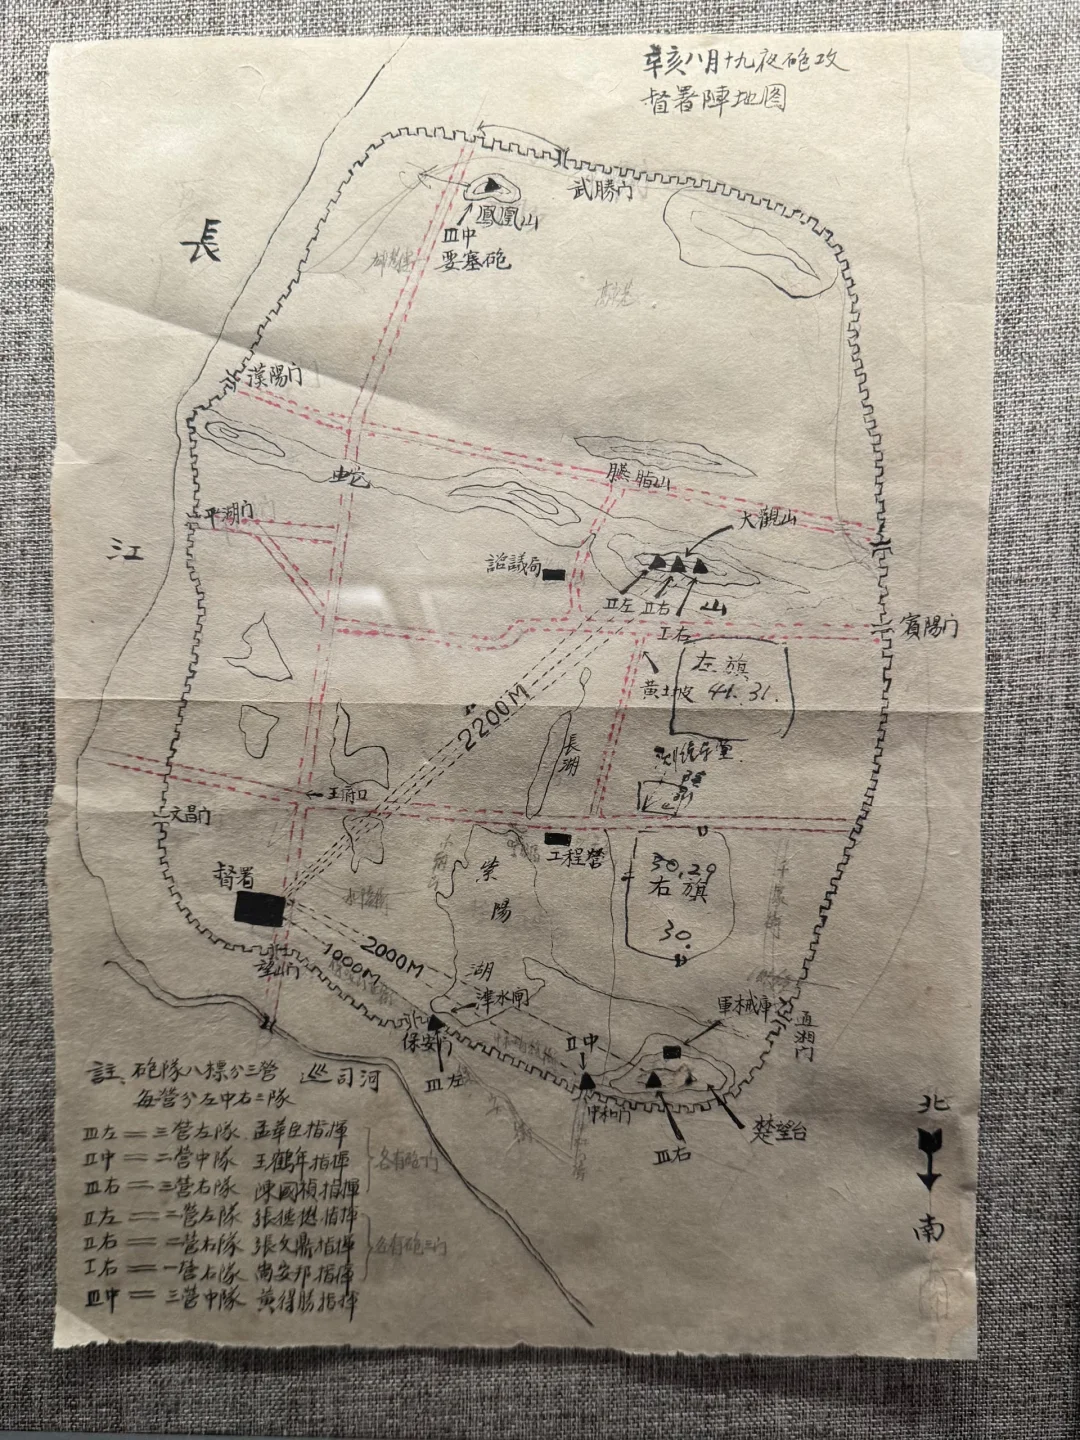 辛亥八月十九夜砲攻
督署陣地图
武勝门
鳳凰山
Ⅲ中
要塞砲
長
漢陽门
蛇
臙脂山
平湖门
大觀山
江
諮議局
Ⅱ左 Ⅱ右
山
Ⅰ右
賓陽门
左旗
黄土坡 41.31.
2200M
長湖
王府口
文昌门
工程营
30,29
右旗
30.
督署
紫陽湖
2000M
1000M
望山门
津水闸
軍械庫
通湘门
保安门
Ⅱ中
Ⅲ左
中和门
楚望台
Ⅲ右
巡司河
北
南
註、砲隊八標分三营
每营分左中右三隊
Ⅲ左 = 三营左隊 孟華臣指揮
Ⅱ中 = 二营中隊 王鶴年指揮
Ⅲ右 = 三营右隊 陳國楨指揮
Ⅱ左 = 二营左隊 張德指揮
Ⅱ右 = 二营右隊 張文鼎指揮
Ⅰ右 = 一营右隊 尚安邦指揮
Ⅲ中 = 三营中隊 黄得勝指揮
各有砲三门